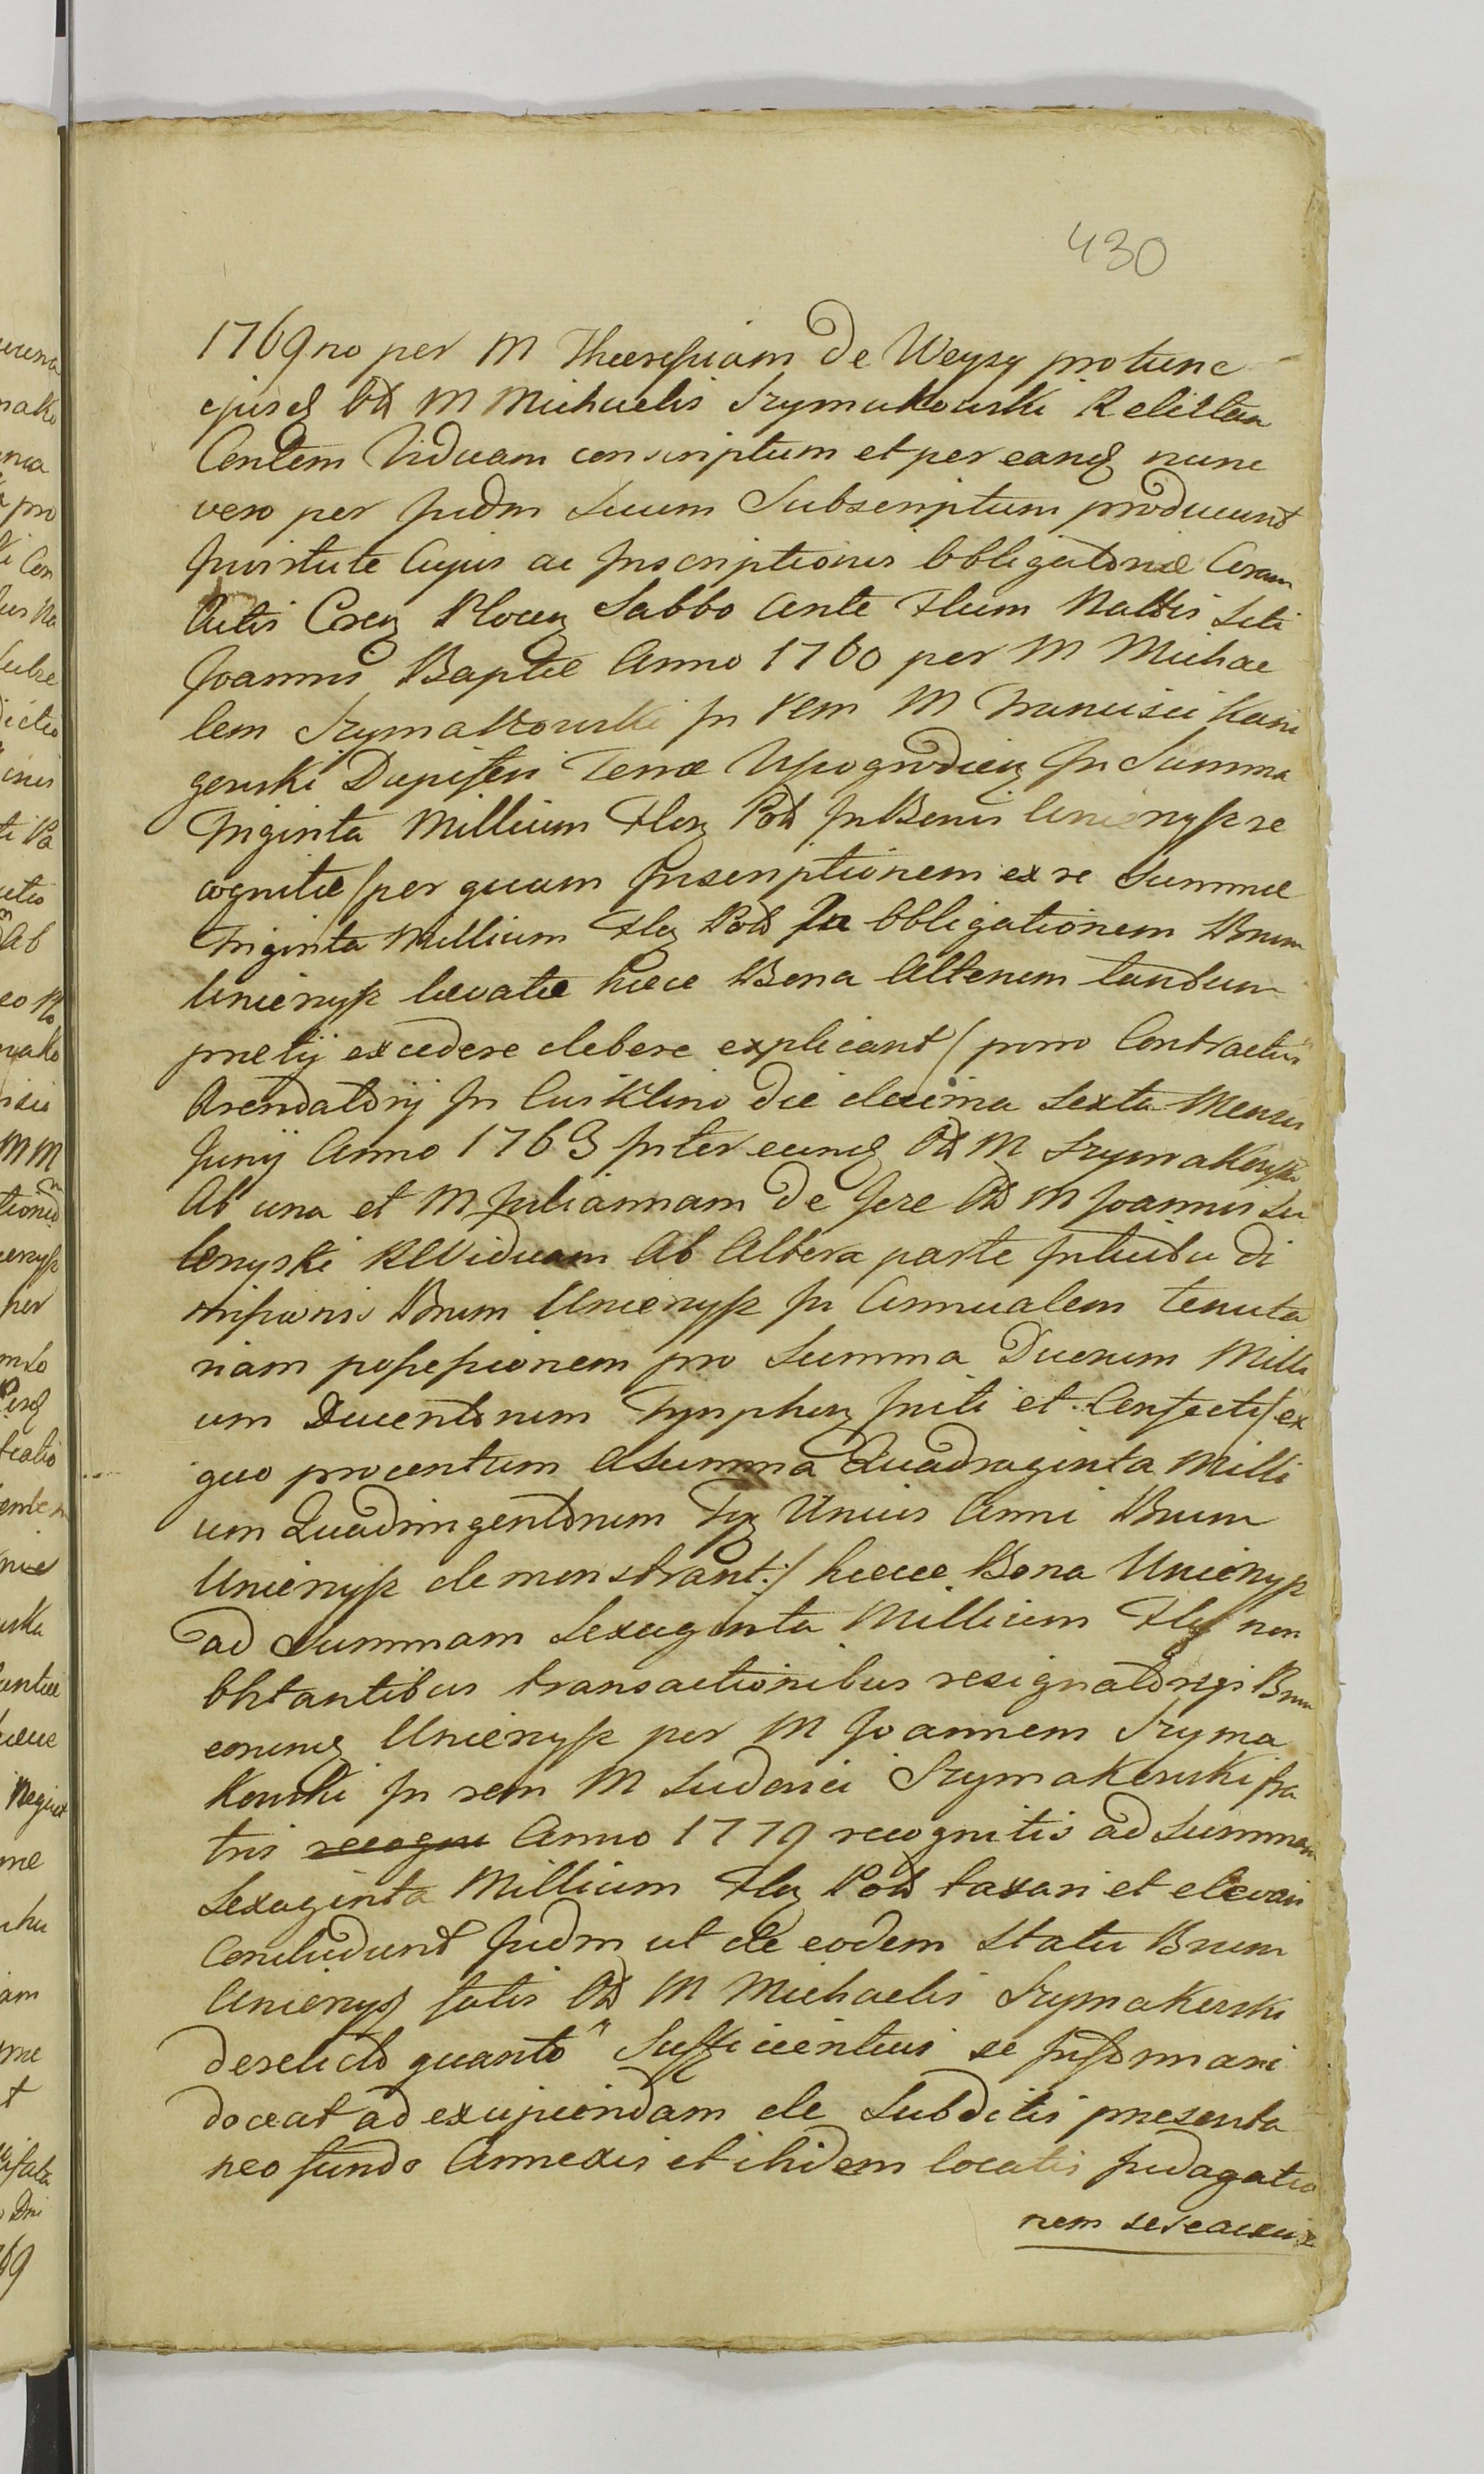 430
1769no per M Theressiam De Weysy protunc
ejusd Od M Michaelis Szymakowski Relictam
Viduam conscriptum et per eand nunc
vero per Judm Suum Subscriptum producunt
Invirtute Cujus ac Inscriptionis Obligatoriæ Coram
Actis Plocen Sabbo Ante Ftum Nattis Scti
Joannis Baptæ Anno 1760 per M Michae
lem Szymakowski In rem M Francisci Kani
gowski Dapiferi Terræ Wyszogrodien In Summa
Triginta Millium Flor Pol In Bonis Unienysz re
cognitæ / per quam Inscriptionem ex re Summæ
Triginta Millium Flor Pol In Obligationem Bnum
Unienysz levatæ hæce Bona Alterum tandum
pretij excedere debere explicant / porro Contractus
Arendatorij In die decima Sexta Mensis
Junij Anno 1763 Inter eund Od M Szymakowski
Ab una et M Juliannam De Od M Joannis Su
lenyski Viduam Ab Altera parte Intuitu di
missionis Bnum Unienysz In Annualem tenuta
riam possessionem pro Summa Duorum Milli
um Ducentorum Tynphor Initi et Confecti / ex
quo procentum a Summa Quadraginta Milli
um Quadringentorum Unius Anni Bnum
Unienysz demonstrant:/ hæcce Bona Unienysz
ad Summam Sexaginta Millium Flor non
Obstantibus transactionibus resignatorijs Bnum
eorund Unienysz per M Joannem Szyma
kowski In rem M Ludovici Szymakowski fra
tris recogni Anno 1779 recognitis ad Summam
Sexaginta Millium Flor Pol taxari et elevari
Concludunt Judm ut de eodem Statu Bnum
Unienysz fatis Od M Michaelis Szymakowski
derelicto quanto Sufficientius se Informari
doceat ad excipiendam de Subditis presenta
neo fundo Annexis et ibidem locatis Indagatio
nem sese